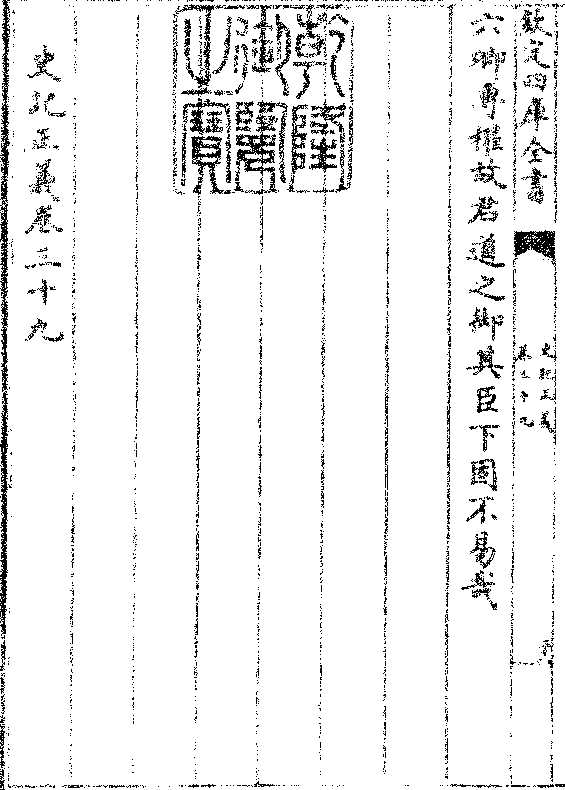 欽定四庫全書
史記正義
卷三十九
六卿專權故君道之御其臣下固不易哉
乾隆御覽之寶
史記正義卷三十九